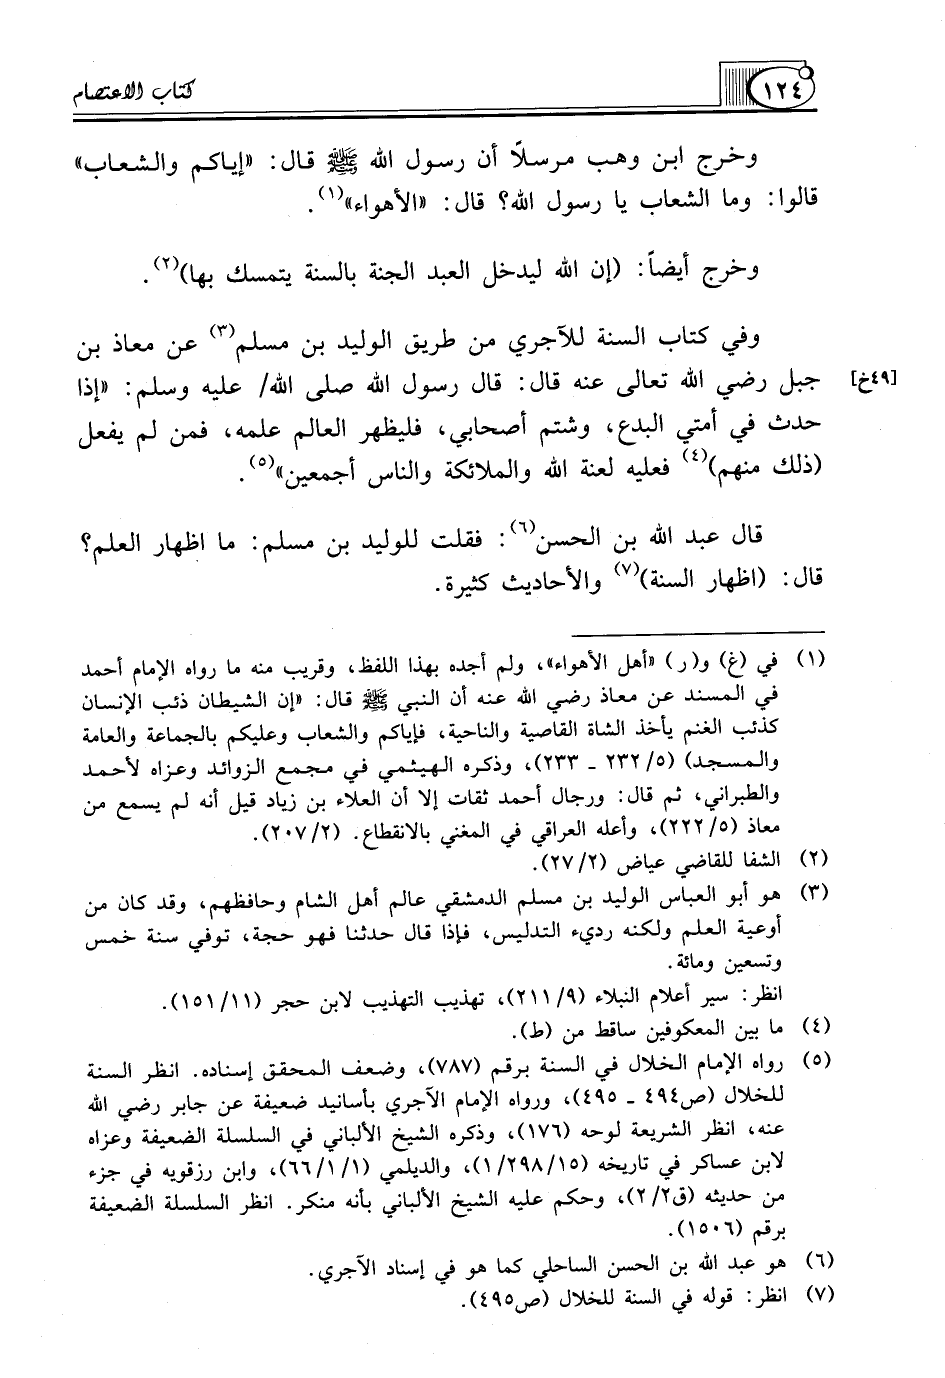 ١٢٤ كتاب الاعتصام
وخرج ابن وهب مرسلاً أن رسول الله ﷺ قال: «إياكم والشعاب»
قالوا: وما الشعاب يا رسول الله؟ قال: «الأهواء»(١).
وخرج أيضاً: (إن الله ليدخل العبد الجنة بالسنة يتمسك بها)(٢).
وفي كتاب السنة للآجري من طريق الوليد بن مسلم(٣) عن معاذ بن
جبل رضي الله تعالى عنه قال: قال رسول الله صلى الله/ عليه وسلم: «إذا [٤٩خ]
حدث في أمتي البدع، وشتم أصحابي، فليظهر العالم علمه، فمن لم يفعل
(ذلك منهم)(٤) فعليه لعنة الله والملائكة والناس أجمعين»(٥).
قال عبد الله بن الحسن(٦): فقلت للوليد بن مسلم: ما اظهار العلم؟
قال: (اظهار السنة)(٧) والأحاديث كثيرة.
(١) في (غ) و(ر) «أهل الأهواء»، ولم أجده بهذا اللفظ، وقريب منه ما رواه الإمام أحمد
في المسند عن معاذ رضي الله عنه أن النبي ﷺ قال: «إن الشيطان ذئب الإنسان
كذئب الغنم يأخذ الشاة القاصية والناحية، فإياكم والشعاب وعليكم بالجماعة والعامة
والمسجد) (٥/ ٢٣٢ ـ ٢٣٣)، وذكره الهيثمي في مجمع الزوائد وعزاه لأحمد
والطبراني، ثم قال: ورجال أحمد ثقات إلا أن العلاء بن زياد قيل أنه لم يسمع من
معاذ (٥/ ٢٢٢)، وأعله العراقي في المغني بالانقطاع. (٢/ ٢٠٧).
(٢) الشفا للقاضي عياض (٢/ ٢٧).
(٣) هو أبو العباس الوليد بن مسلم الدمشقي عالم أهل الشام وحافظهم، وقد كان من
أوعية العلم ولكنه رديء التدليس، فإذا قال حدثنا فهو حجة، توفي سنة خمس
وتسعين ومائة.
انظر: سير أعلام النبلاء (٩/ ٢١١)، تهذيب التهذيب لابن حجر (١١/ ١٥١).
(٤) ما بين المعكوفين ساقط من (ط).
(٥) رواه الإمام الخلال في السنة برقم (٧٨٧)، وضعف المحقق إسناده. انظر السنة
للخلال (ص٤٩٤ ـ ٤٩٥)، ورواه الإمام الآجري بأسانيد ضعيفة عن جابر رضي الله
عنه، انظر الشريعة لوحه (١٧٦)، وذكره الشيخ الألباني في السلسلة الضعيفة وعزاه
لابن عساكر في تاريخه (١٥/ ٢٩٨/ ١)، والديلمي (١/ ١/ ٦٦)، وابن رزقويه في جزء
من حديثه (ق٢/ ٢)، وحكم عليه الشيخ الألباني بأنه منكر. انظر السلسلة الضعيفة
برقم (١٥٠٦).
(٦) هو عبد الله بن الحسن الساحلي كما هو في إسناد الآجري.
(٧) انظر: قوله في السنة للخلال (ص٤٩٥).